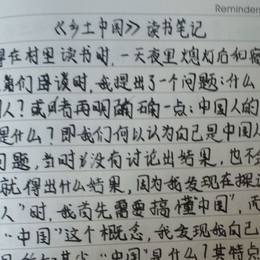 Reminder
《乡土中国》读书笔记
得在村里读书时,一天夜里熄灯后和寝
弟们夜谈时,我提出了一个问题:什么
人?或者再明确一点:中国人的
是什么?即我们何以认为自己是中国人
问题,当时没有讨论出结果,也不
就得出什么结果,因为我发现在探讨
人"时,我首先需要搞懂"中国",而
"中国"这个概念,我发现我自己
"中国"是什么?其特点